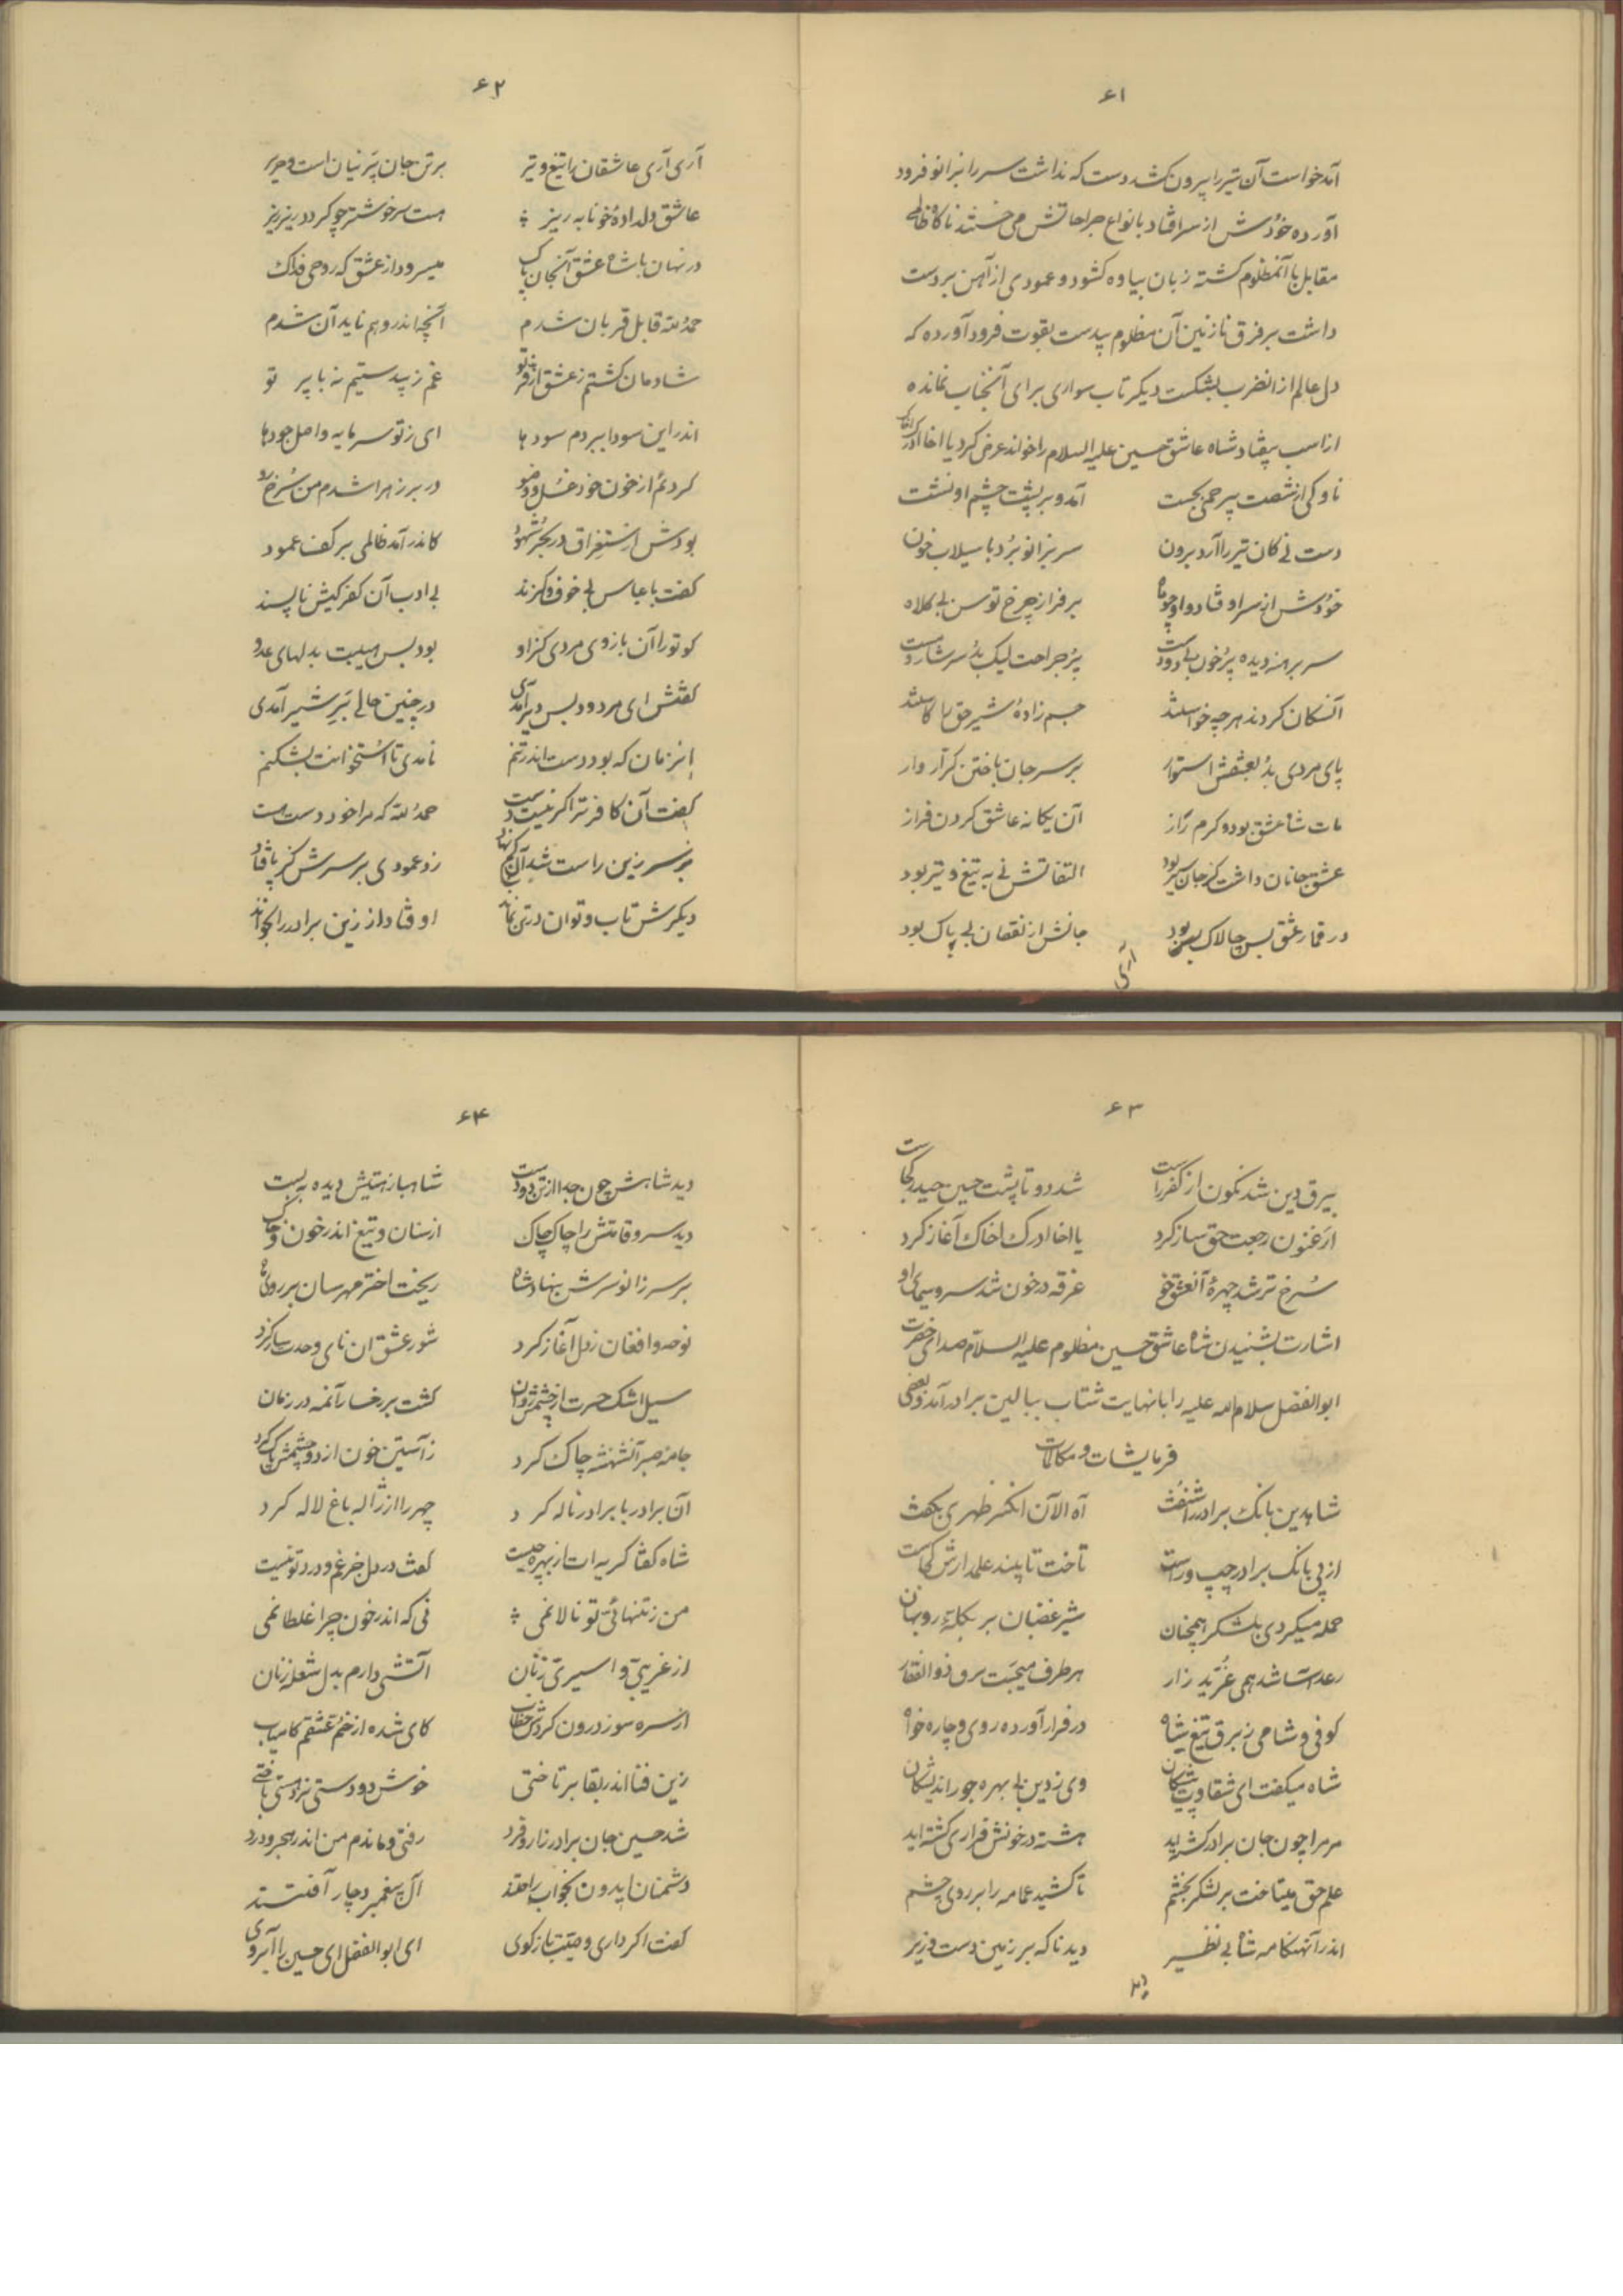 ۶۱
آمد خواست آن تیر را بیرون کشد دست که نداشت سر را بزانو فرود
آورده خودش از سر افتاد بانواع جراحاتش می خستند ناگاه ظالمی
مقابل با آنمظلوم گشته زبان بیاوه گشود و عمودی از آهن بر دست
داشت بر فرق نازنین آن مظلوم بیدست بقوت فرود آورده که
دل عالم از انضرب بشکست دیگر تاب سواری برای آنجناب نمانده
از اسب بیفتاد شاه عاشق حسین علیه السلام را خواند عرض کرد یا اخا ادرک اخاک
ناوکی از شصت بیرحمی بجست آمد و بر پشت چشم او نشست
دست نی کان تیر را آرد برون سر بزانو برد با سیلاب خون
خودش از سر اوفتاد و او چو ماه بر فراز چرخ توسن بی کلاه
سر برهنه دیده پر خون بی دو دست پر جراحت لیک بد سرشار و مست
آنسکان کردند هر چه خواستند جسم زادهٔ شیر حق را کاستند
پای مردی بد بعشقش استوار بر سر جان باختن کرار وار
مات شاه عشق بود و گرم راز آن یکانه عاشق گردن فراز
عشق جانان داشت کز جان سیر بود التفاتش نی به تیغ و تیر بود
در قمار عشق بس چالاک بود جانش از نقصان بی باک بود
آری
۶۲
آری آری عاشقان را تیغ و تیر بر تن جان پرنیان است و حریر
عاشق دلدادهٔ خونابه ریز هست سر خوشتر چو گردد ریز ریز
در نهان با شاه عشق آنجان پاک میسرود از عشق که روحی فداک
حمد لله قابل قربان شدم آنچه اندر وهم ناید آن شدم
شادمان گشتم ز عشق از فر تو غم ز بیدستیم نه با پر تو
اندر این سودا ببردم سودها ای ز تو سرمایه و اصل جودها
کردم از خون خود غسل و وضو در بر زهرا شدم من سرخ رو
بودش استغراق در بحر شهود کاندر آمد ظالمی بر کف عمود
گفت با عباس بی خوف و گزند بی ادب آن کفر کیش ناپسند
کو تو را آن بازوی مردی کز او بود بس هیبت بدلهای عدو
گفتش ای مردود بس دیر آمدی در چنین حالی بر شیر آمدی
انزمان که بود دست اندر تنم نامدی تا استخوانت بشکنم
گفت آن کافر ترا گر نیست دست حمد لله که مرا خود دست هست
زد عمودی بر سرش کز پا فتاد
دیگرش تاب و توان در تن نماند اوفتاد از زین برادر را بخواند
۶۳
بیرق دین شد نگون از کفر راست شد دو تا پشت حسین حیدر کجاست
ارغنون رجعت حق ساز کرد یا اخا ادرک اخاک آغاز کرد
سرخ تر شد چهرهٔ آنعشق خو غرقه در خون شد سر و سیمای او
اشارت بشنیدن شاه عاشق حسین مظلوم علیه السلام صدای حضرت
ابوالفضل سلام الله علیه را با نهایت شتاب ببالین برادر آمد و بعضی
فرمایشات و مکالمات
شاه دین بانگ برادر را شنفت آه الآن انکسر ظهری بگفت
از پی بانگ برادر چپ و راست تاخت تا بیند علمدارش کجاست
حمله میکردی بلشکر همچنان شیر غضبان بر گلهٔ روبهان
رعد آسا شد همی غرید زار هر طرف میجست برق ذوالفقار
کوفی و شامی ز برق تیغ شاه در فرار آورده روی و چاره خواه
شاه میگفت ای شقاوت پیشکان وی ز دین بی بهره جور اندیشکان
مر مرا چون جان برادر کشته اید هشته در خونش فراری گشته اید
علم حق میتاخت بر لشکر بخشم تا کشید عمامه را بر روی چشم
اندر آنهنگامه شاه بی نظیر دید ناگه بر زمین دست وزیر
دید
۶۴
دید شاهش چون جدا از تن دو دست شاهباز هستیش دیده به بست
دید سرو قامتش را چاک چاک از سنان و تیغ اندر خون و خاک
بر سر زانو سرش بنهاد شاه ریخت اختر مهرسان بر روی ماه
نوحه و افغان ز دل آغاز کرد شور عشق آن نای وحدت ساز کرد
سیل اشک حسرت از چشمش روان گشت بر رخسار آنمه در زمان
جامهٔ صبر آنشهنشه چاک کرد ز آستین خون از دو چشمش پاک کرد
آن برادر با برادر ناله کرد چهر را از ژاله باغ لاله کرد
شاه گفتا گریه ات از بهر چیست گفت در دل جز غم و درد تو نیست
من ز تنهائی تو نالانمی نی که اندر خون چرا غلطانمی
از غریبی و اسیری زنان آتشی دارم بدل شعله زنان
از سر سوز درون کردش خطاب کای شده از خم عشقم کامیاب
زین فنا اندر بقا بر تاختی خوش دو دستی نرد هستی باختی
شد حسین جان برادر زار و فرد رفتی و ماندم من اندر هجر و درد
دشمنان ایدون بخواب راحتند آل پیغمبر دچار آفتند
گفت اکر داری وصیت بازگوی ای ابوالفضل ای حسین را آبروی